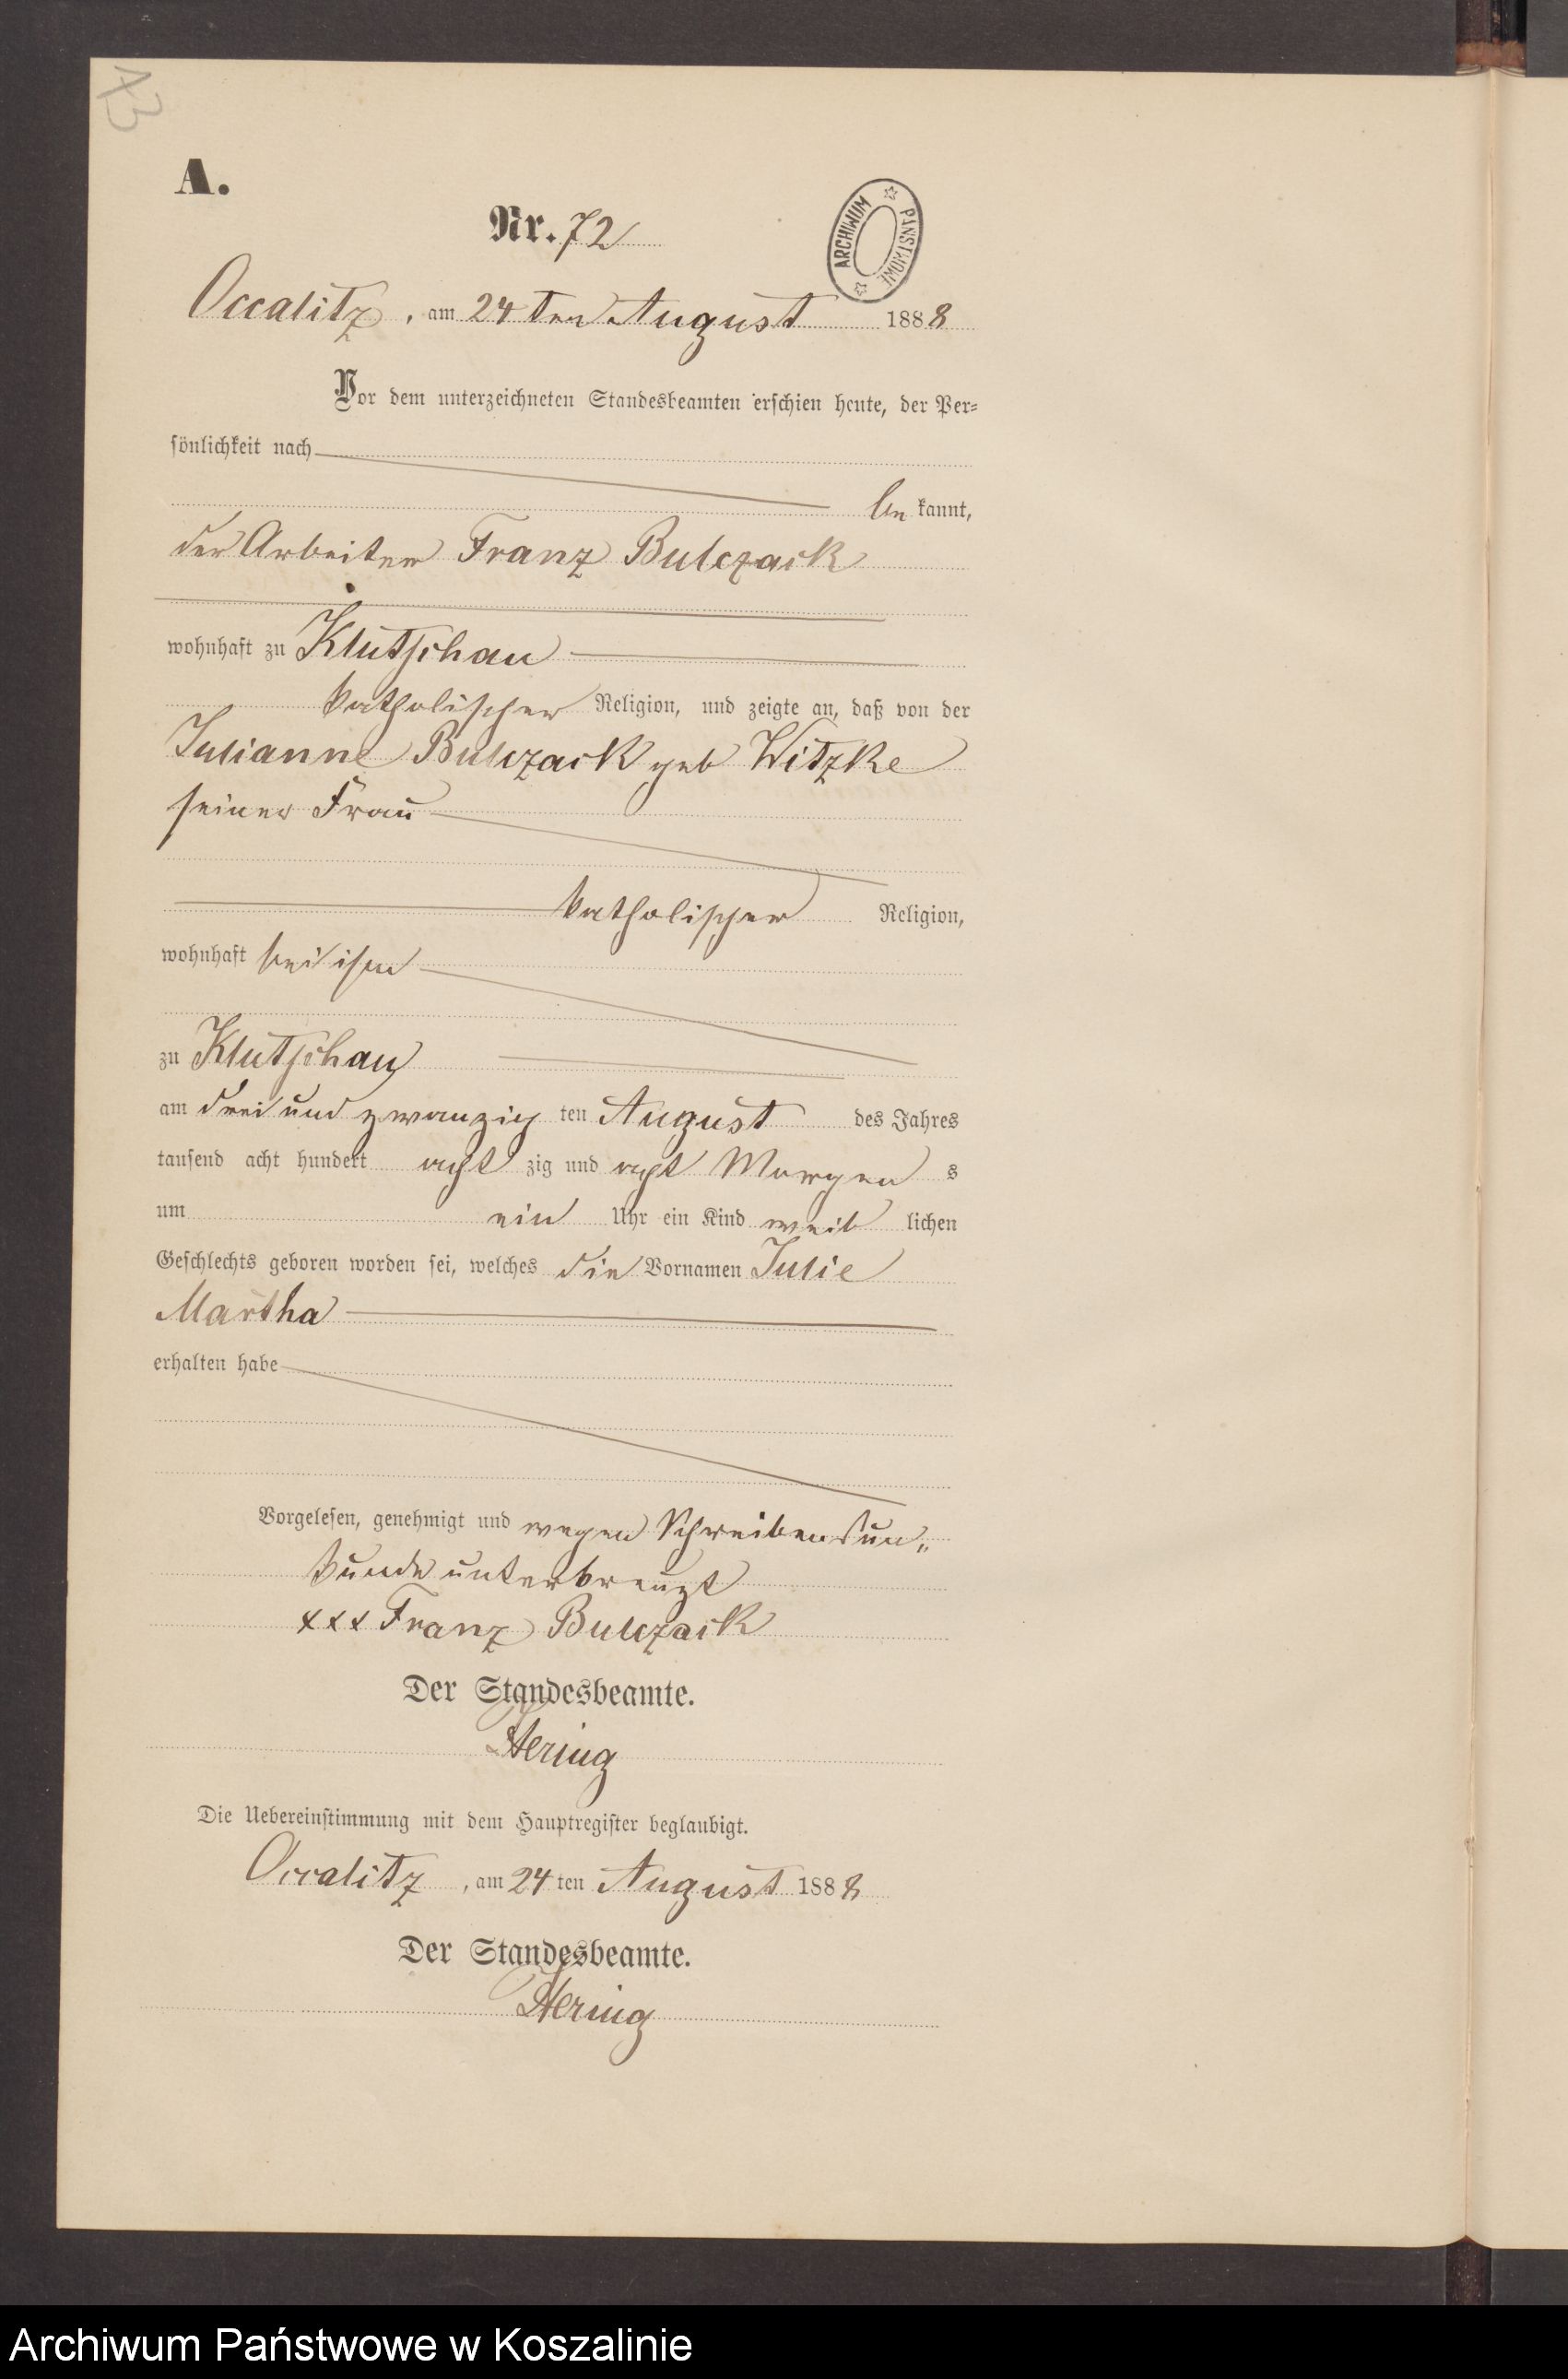 73
A.
Nr. 72
ARCHIWUM PAŃSTWOWE
Occalitz, am 24ten August 1888
Vor dem unterzeichneten Standesbeamten erschien heute, der Per=
sönlichkeit nach
be kannt,
der Arbeiter Franz Bulczack
wohnhaft zu Klutschau
katholischer Religion, und zeigte an, daß von der
Julianne Bulczack geb Witzke
seiner Frau
katholischer Religion,
wohnhaft bei ihm
zu Klutschau
am drei und zwanzig ten August des Jahres
tausend acht hundert acht zig und acht Morgen s
um ein Uhr ein Kind weib lichen
Geschlechts geboren worden sei, welches die Vornamen Julie
Martha
erhalten habe
Vorgelesen, genehmigt und wegen Schreibensun„
kunde unterkreuzt
xxx Franz Bulczack
Der Standesbeamte.
Hering
Die Uebereinstimmung mit dem Hauptregister beglaubigt.
Occalitz, am 24 ten August 1888
Der Standesbeamte.
Hering
Archiwum Państwowe w Koszalinie